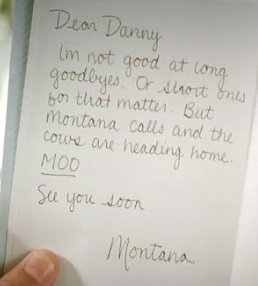 Dear Danny
I'm not good at long
goodbyes. Or short ones
for that matter. But
Montana calls and the
cows are heading home.
MOO
See you soon.
Montana